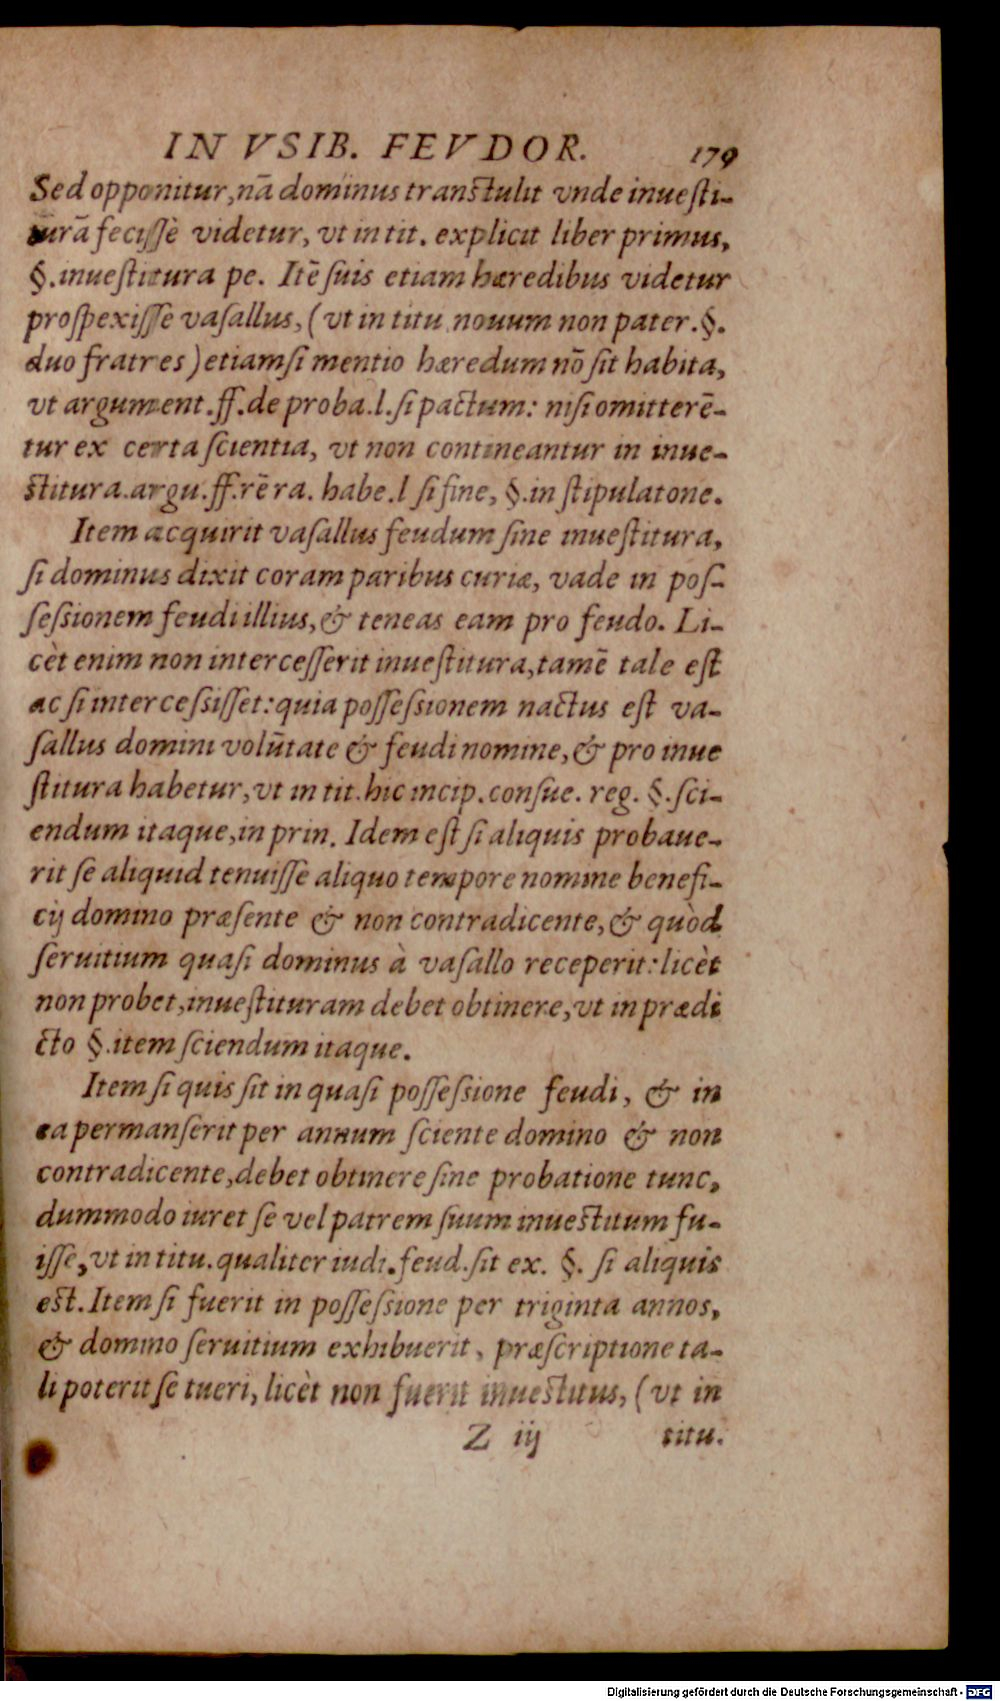 IN VSIB. FEVDOR. 179
Sed opponitur, nā dominus transtulit vnde inuesti-
turā fecissè videtur, vt in tit. explicit liber primus,
§. inuestitura pe. Itē suis etiam hæredibus videtur
prospexisse vasallus, (vt in titu. nouum non pater. §.
duo fratres) etiamsi mentio hæredum nō sit habita,
vt argument. ff. de proba. l. si pactum: nisi omitterē-
tur ex certa scientia, vt non contineantur in inue-
stitura. argu. ff. rē ra. habe. l si fine, §. in stipulatone.
Item acquirit vasallus feudum sine inuestitura,
si dominus dixit coram paribus curiæ, vade in pos-
sessionem feudi illius, & teneas eam pro feudo. Li-
cèt enim non intercesserit inuestitura, tamē tale est
ac si intercessisset: quia possessionem nactus est va-
sallus domini volūtate & feudi nomine, & pro inue
stitura habetur, vt in tit. hic incip. consue. reg. §. sci-
endum itaque, in prin. Idem est si aliquis probaue-
rit se aliquid tenuisse aliquo tempore nomine benefi-
cij domino præsente & non contradicente, & quòd
seruitium quasi dominus à vasallo receperit: licèt
non probet, inuestituram debet obtinere, vt in prædi
cto §. item sciendum itaque.
Item si quis sit in quasi possessione feudi, & in
ea permanserit per annum sciente domino & non
contradicente, debet obtinere sine probatione tunc,
dummodo iuret se vel patrem suum inuestitum fu-
isse, vt in titu. qualiter iudi. feud. sit ex. §. si aliquis
est. Item si fuerit in possessione per triginta annos,
& domino seruitium exhibuerit, præscriptione ta-
li poterit se tueri, licèt non fuerit inuestitus, (vt in
Z iij titu.
Digitalisierung gefördert durch die Deutsche Forschungsgemeinschaft - DFG